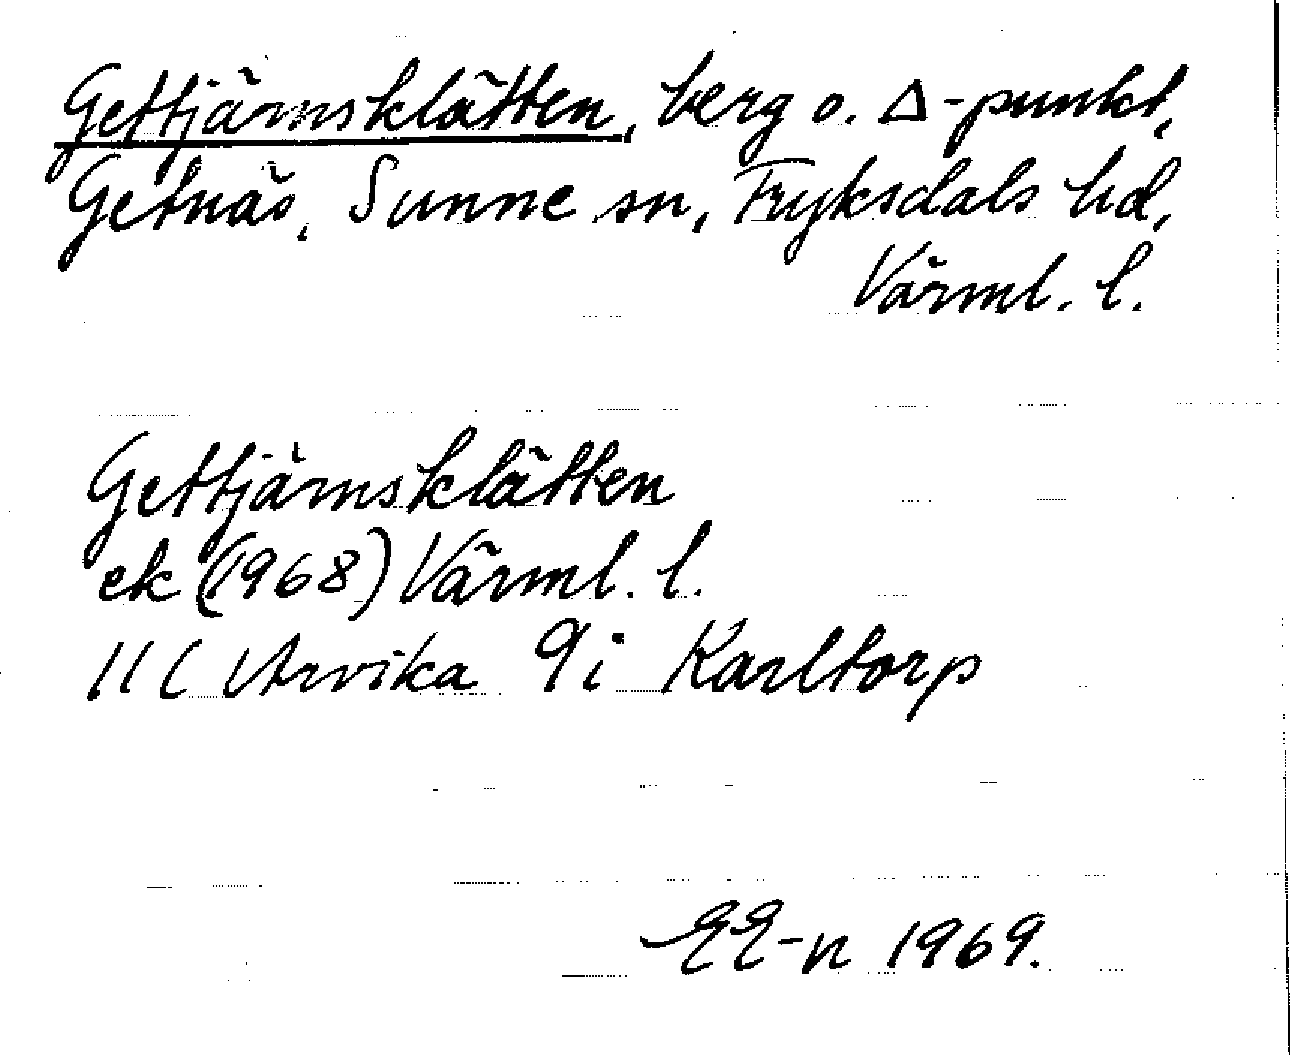 Gettjärnsklätten, berg o. Δ-punkt,
Getnäs, Sunne sn, Fryksdals hd,
Värml. l.
Gettjärnsklätten
ek (1968) Värml. l.
11 C Arvika 9i Karltorp
EE-n 1969.